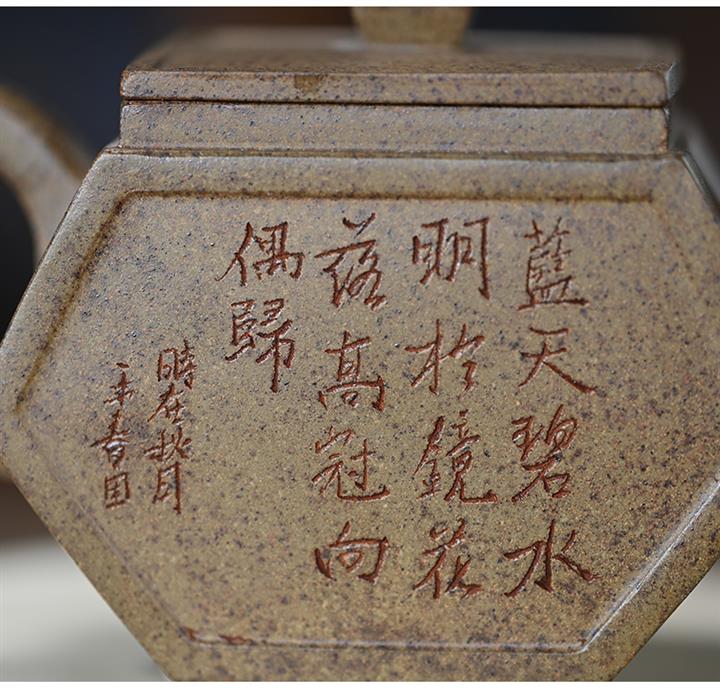 藍天碧水
明於鏡花
落高冠向
偶歸
時在秋月
春国